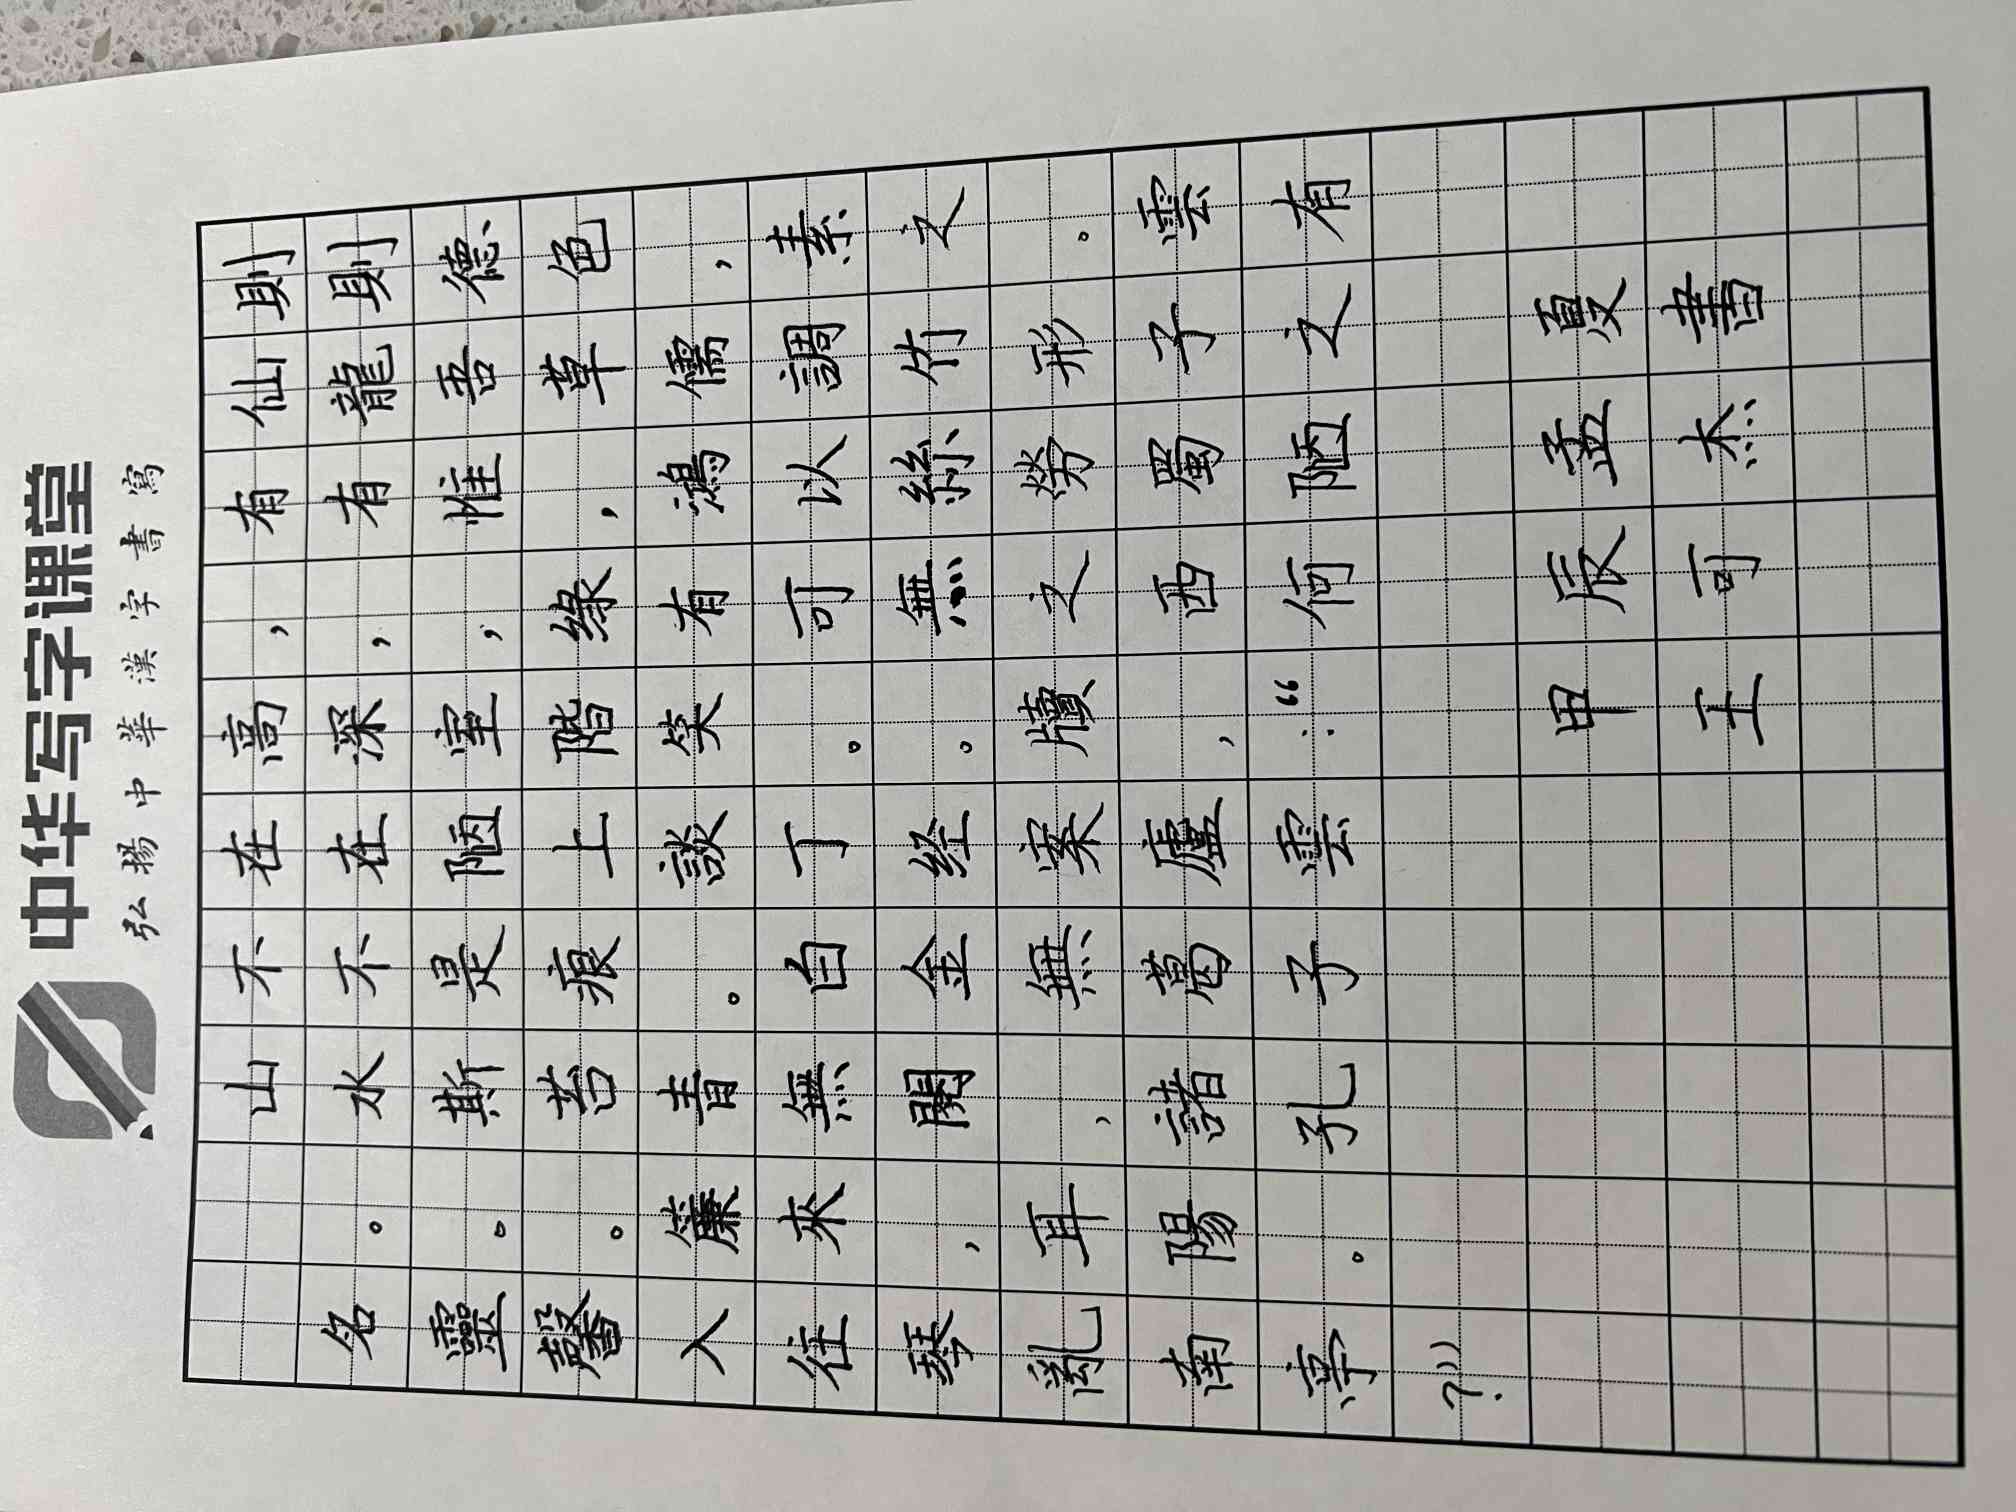 中华写字课堂
弘揚中華漢字書寫
山不在高，有仙則
名。水不在深，有龍則
靈。斯是陋室，惟吾德
馨。苔痕上階綠，草色
入簾青。談笑有鴻儒，
往來無白丁。可以調素
琴，閱金经。無絲竹之
亂耳，無案牘之勞形。
南陽諸葛廬，西蜀子雲
亭。孔子雲：“何陋之有
？”
甲辰孟夏
王可杰書